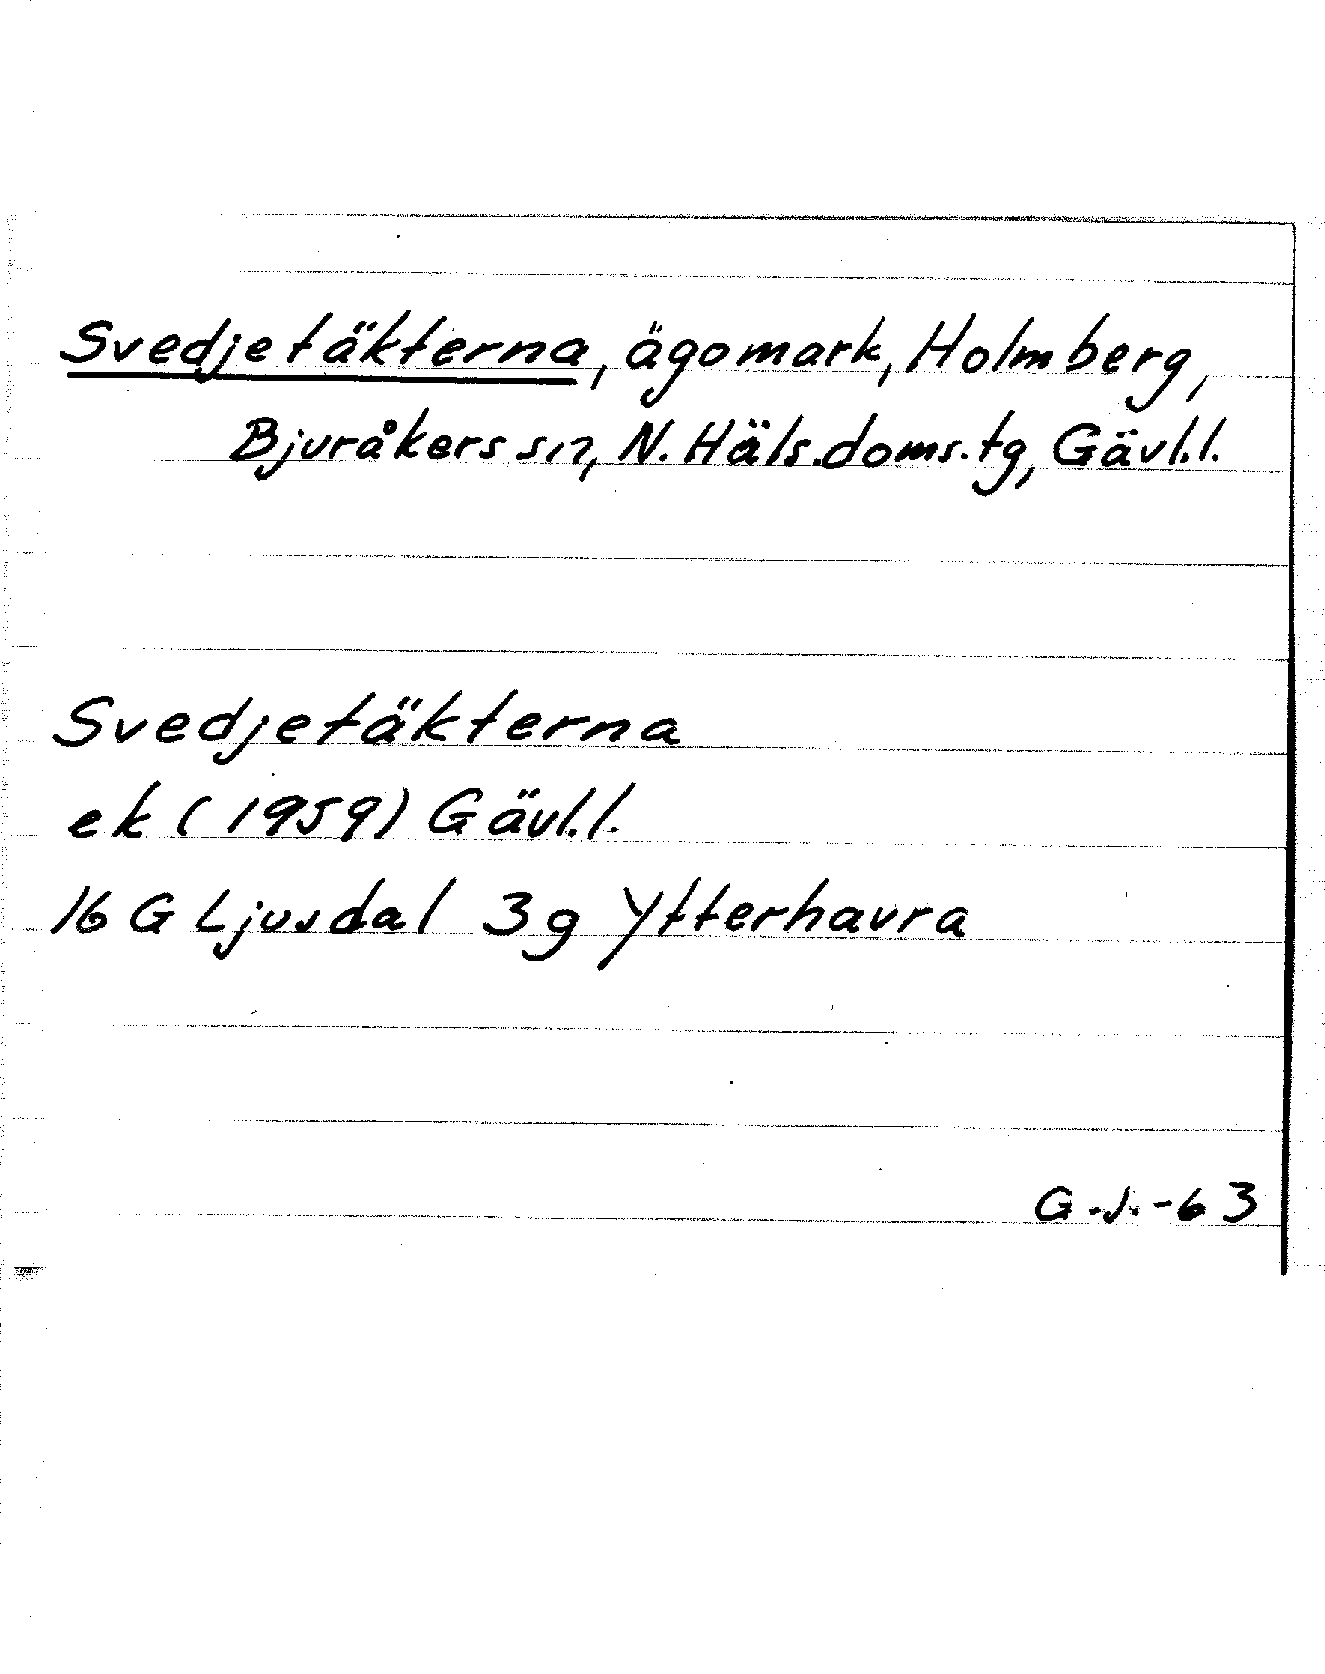 Svedjetäkterna, ägomark, Holmberg,
Bjuråkers sn, N. Häls. doms. tg, Gävl.l.
Svedjetäkterna
ek (1959) Gävl.l.
16 G Ljusdal 3g Ytterhavra
G.J.-63